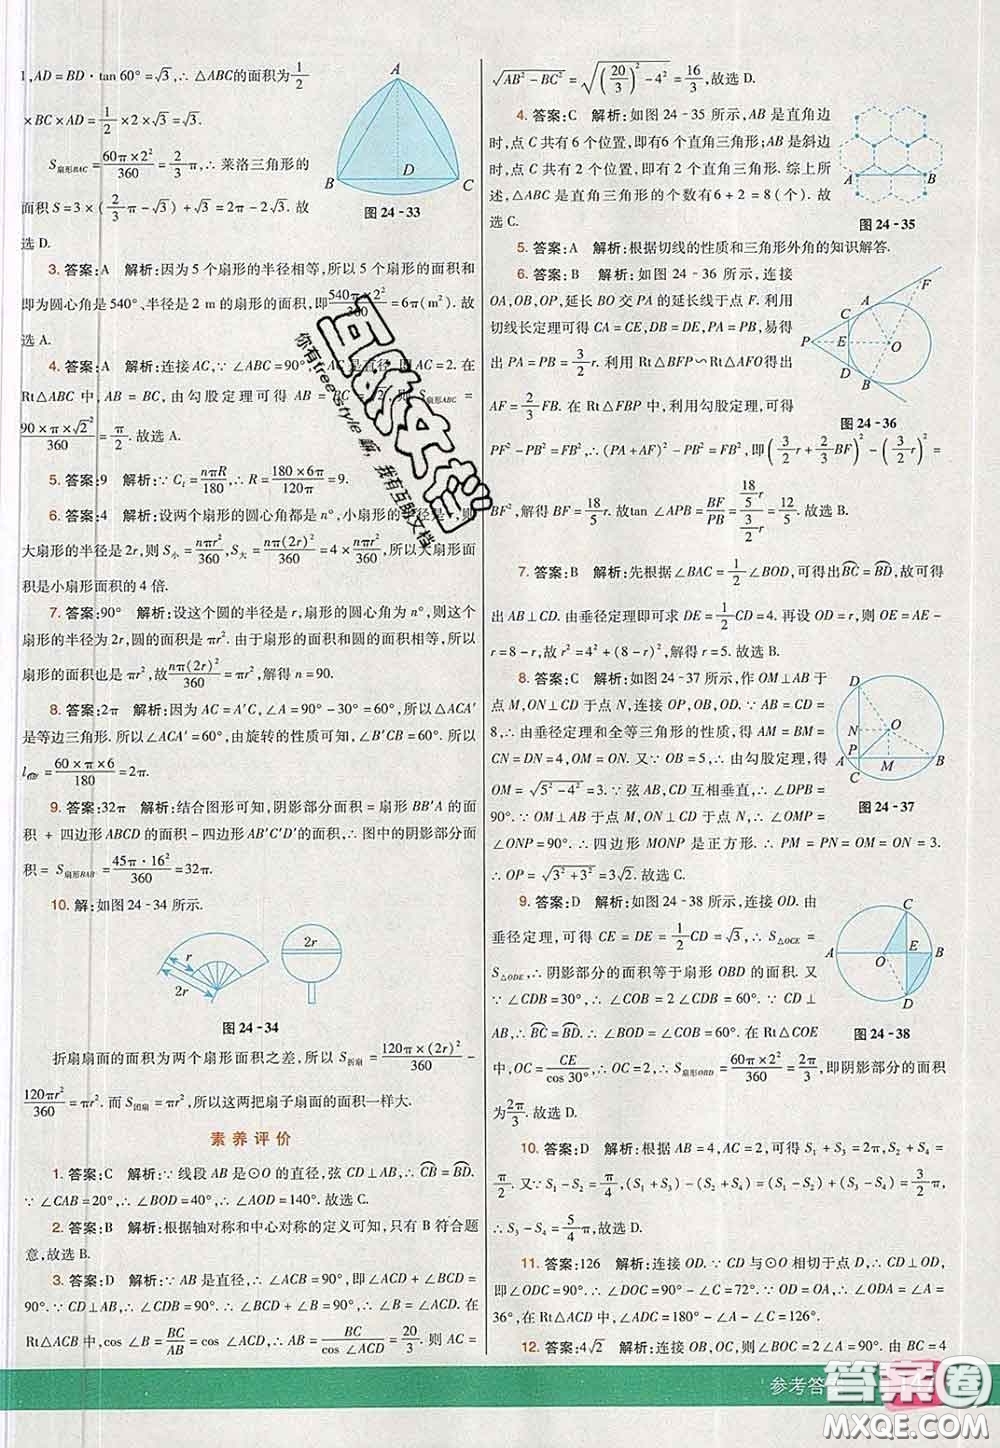 1,AD=BD·tan 60°=√3,∴ △ABC的面积为1/2
×BC×AD=1/2×2×√3=√3.
S扇形BAC=60π×2²/360=2/3π,∴ 莱洛三角形的
面积 S=3×(2/3π-√3)+√3=2π-2√3. 故
选 D.
A
B
D
C
图 24-33
3. 答案:A 解析:因为 5 个扇形的半径相等,所以 5 个扇形的面积和
即为圆心角是540°、半径是 2 m 的扇形的面积,即540π×2²/360=6π(m²). 故
选 A.
4. 答案:A 解析:连接 AC,∵ ∠ABC=90°,AC 是直径,即 AC=2. 在
Rt△ABC 中,AB=BC,由勾股定理可得 AB=BC=√2,S扇形ABC=
90×π×√2²/360=π/2. 故选 A.
5. 答案:9 解析:∵ Cl=nπR/180,∴ R=180×6π/120π=9.
6. 答案:4 解析:设两个扇形的圆心角都是 n°,小扇形的半径是 r,则
大扇形的半径是 2r,则 S小=nπr²/360,S大=nπ(2r)²/360=4×nπr²/360,所以大扇形面
积是小扇形面积的 4 倍.
7. 答案:90° 解析:设这个圆的半径是 r,扇形的圆心角为 n°,则这个
扇形的半径为 2r,圆的面积是 πr². 由于扇形的面积和圆的面积相等,所以
扇形的面积也是 πr²,故nπ(2r)²/360=πr²,解得 n=90.
8. 答案:2π 解析:因为 AC=A′C,∠A=90°-30°=60°,所以△ACA′
是等边三角形. 所以∠ACA′=60°,由旋转的性质可知,∠B′CB=60°,所以
l=60×π×6/180=2π.
9. 答案:32π 解析:结合图形可知,阴影部分面积=扇形 BB′A 的面
积 + 四边形 ABCD 的面积-四边形 AB′C′D′的面积,∴ 图中的阴影部分面
积= S扇形BAB′=45π·16²/360=32π.
10. 解:如图 24-34 所示.
r
2r
2r
图 24-34
折扇扇面的面积为两个扇形面积之差,所以 S折扇=120π×(2r)²/360-
120πr²/360=πr². 而 S团扇=πr²,所以这两把扇子扇面的面积一样大.
素养评价
1. 答案:C 解析:∵ 线段 AB 是⊙O 的直径,弦 CD⊥AB,∴ CB=BD.
∵ ∠CAB=20°,∴ ∠BOD=40°,∴ ∠AOD=140°. 故选 C.
2. 答案:B 解析:根据轴对称和中心对称的定义可知,只有 B 符合题
意,故选 B.
3. 答案:D 解析:∵ AB 是直径,∴ ∠ACB=90°,∴ ∠ACD+∠BCD=
90°. ∵ CD⊥AB,∴ ∠BCD+∠B=90°,∴ ∠B=∠ACD. 在
Rt△ACB 中,cos ∠B=BC/AB=cos ∠ACD,∴ AB=BC/cos ∠ACD=20/3. 则 AC=
√(AB²-BC²)=√((20/3)²-4²)=16/3,故选 D.
4. 答案:C 解析:如图 24-35 所示,AB 是直角边
时,点 C 共有 6 个位置,即有6个直角三角形;AB 是斜边
时,点 C 共有 2 个位置,即有 2 个直角三角形. 综上所
述,△ABC 是直角三角形的个数有6+2=8(个). 故
选 C.
A
B
图 24-35
5. 答案:A 解析:根据切线的性质和三角形外角的知识解答.
6. 答案:B 解析:如图 24-36 所示,连接
OA,OB,OP,延长 BO 交 PA 的延长线于点 F. 利用
切线长定理可得 CA=CE,DE=DB,PA=PB,易得
出 PA=PB=3/2r. 利用 Rt△BFP∽Rt△AFO得出
AF=2/3FB. 在 Rt△FBP 中,利用勾股定理,可得
F
A
C
P
E
O
D
B
图 24-36
PF²-PB²=FB²,∴(PA+AF)²-PB²=FB²,即(3/2r+2/3BF)²-(3/2r)²=
BF²,解得 BF=18/5r. 故tan ∠APB=BF/PB=(18/5r)/(3/2r)=12/5. 故选 B.
7. 答案:B 解析:先根据∠BAC=1/2∠BOD,可得出BC=BD,故可得
出 AB⊥CD,由垂径定理即可求 DE=1/2CD=4. 再设 OD=r,则 OE=AE-
r=8-r,故 r²=4²+(8-r)²,解得 r=5. 故选 B.
8. 答案:C 解析:如图 24-37 所示,作 OM⊥AB 于
点 M,ON⊥CD 于点 N,连接 OP,OB,OD. ∵ AB=CD=
8,∴ 由垂径定理和全等三角形的性质,得 AM=BM=
CN=DN=4. 由勾股定理,得
OM=√(5²-4²)=3. ∵ 弦 AB,CD 互相垂直,∴ ∠DPB=
90°. ∵ OM⊥AB 于点 M,ON⊥CD 于点 N,∴ ∠OMP=
∠ONP=90°. ∴ 四边形 MONP 是正方形. ∴ PM=PN=OM=ON=3.
∴ OP=√(3²+3²)=3√2. 故选 C.
D
N
O
P
A
M
B
C
图 24-37
9. 答案:D 解析:如图 24-38 所示,连接 OD. 由
垂径定理,可得 CE=DE=1/2CD=√3,∴ S△OCE=
S△ODE,∴ 阴影部分的面积等于扇形 OBD 的面积. ∵
∠CDB=30°,∴ ∠COB=60°. ∵ CD⊥
AB,∴ BC=BD. ∴ ∠COB=∠BOD=60°. 在 Rt△COE
C
A
O
E
B
D
图 24-38
中,OC=CE/cos 30°,∴ OC=2,∴ S扇形OBD=60π×2²/360=2π/3,即阴影部分的面积
为2π/3. 故选 D.
10. 答案:D 解析:根据 AB=4,AC=2,可得 S₁+S₃=2π,S₂+S₄=
π/2. 又∵ S₁-S₂=π/4,(S₁+S₃)-(S₂+S₄)=(S₁-S₂)+(S₃-S₄)=3/2π,
∴ S₃-S₄=5/4π,故选 D.
11. 答案:126 解析:连接 OD. ∵ CD 与⊙O 相切于点 D,∴ CD⊥OD,
∴ ∠ODC=90°. ∴ ∠DOC=90°-∠C=72°. ∵ OD=OA,∴ ∠A=
36°,在 Rt△ACD 中,∠ADC=180°-∠A-∠C=126°.
12. 答案:4√2 解析:连接 OB,OC,则∠BOC=2∠A=90°. 由 BC=4
参考答
互助文档
你有freestyle 嗨, 我有互助文档
答案圈
MXQE.COM